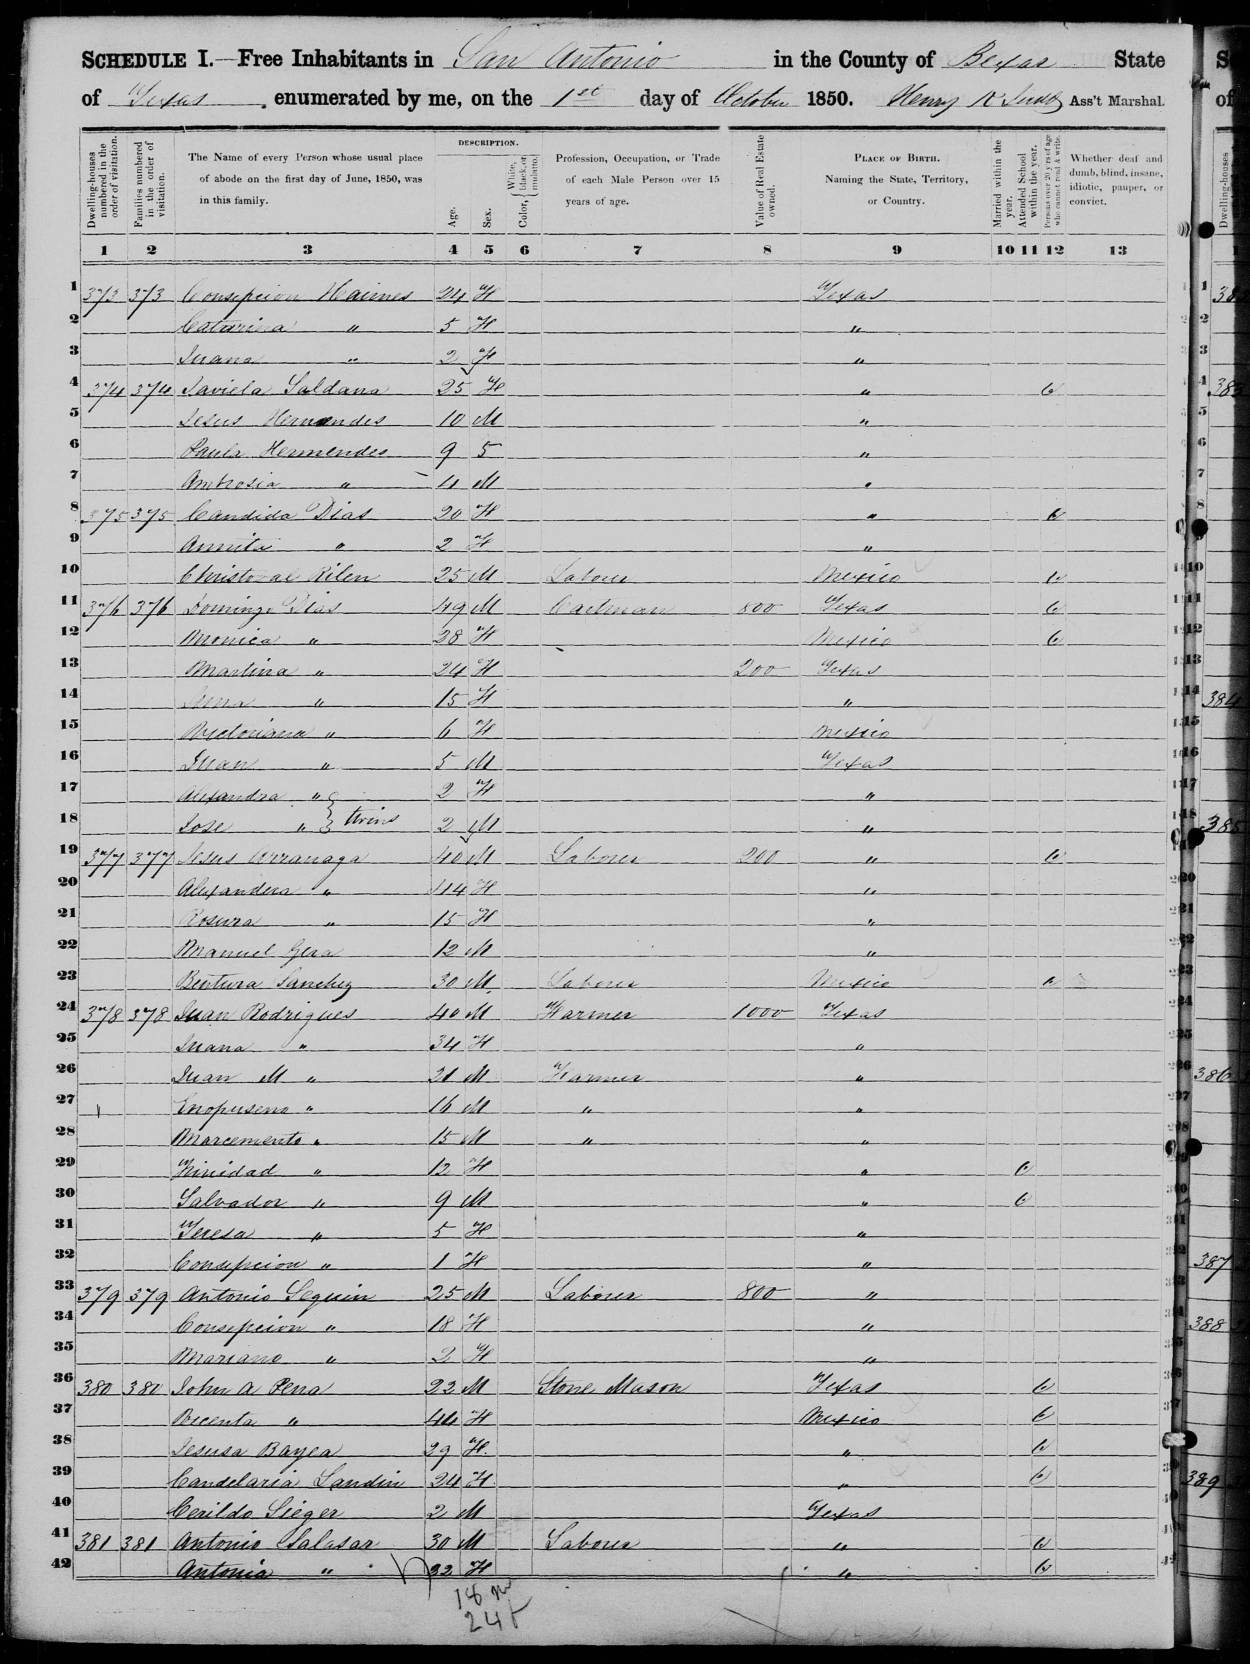 SCHEDULE I.—Free Inhabitants in San Antonio in the County of Bexar State
of Texas, enumerated by me, on the 1st day of October 1850. Henry Ass't Marshal.
Dwelling-houses numbered in the order of visitation.
Families numbered in the order of visitation.
The Name of every Person whose usual place of abode on the first day of June, 1850, was in this family.
DESCRIPTION.
Age.
Sex.
Color, { White, black, or mulatto.
Profession, Occupation, or Trade of each Male Person over 15 years of age.
Value of Real Estate owned.
PLACE OF BIRTH. Naming the State, Territory, or Country.
Married within the year.
Attended School within the year.
Persons over 20 y'rs of age who cannot read & write.
Whether deaf and dumb, blind, insane, idiotic, pauper, or convict.
1 2 3 4 5 6 7 8 9 10 11 12 13
1 373 373 Consepcion Haines 24 F Texas
2 Caturina " 5 F "
3 Juana " 2 F "
4 374 374 Saldana 25 F " 6
5 Jesus Hernendes 10 M "
6 Paula Hernendes 9 5 "
7 Ambrosia " 4 M "
8 375 375 Candida Dias 20 F " 6
9 Annita " 2 F "
10 Christoval 25 M Laborer Mexico 6
11 376 376 Domingo Dias 49 M Cartman 800 Texas 6
12 Monica " 28 F Mexico 6
13 Martina " 24 F 200 Texas
14 " 15 F "
15 Victoriana " 6 F Mexico
16 Juan " 5 M Texas
17 Alexandra " } twins 2 F "
18 Jose " 2 M "
19 377 377 Jesus Arranaga 40 M Laborer 200 " 6
20 Alexandera " 44 F "
21 Rosura " 15 F "
22 Manuel Gera 12 M "
23 Bentura Sanchez 30 M Laborer Mexico 6
24 378 378 Juan Rodrigues 40 M Farmer 1000 Texas
25 Juana " 34 F "
26 Juan M " 21 M Farmer "
27 " 16 M " "
28 Marcemento " 15 M " "
29 Trinidad " 12 F " 6
30 Salvador " 9 M " 6
31 Teresa " 5 F "
32 Consepcion " 1 F "
33 379 379 Antonio Seguin 25 M Laborer 800 "
34 Consepcion " 18 F "
35 Mariano " 2 F "
36 380 380 John A Pena 22 M Stone Mason Texas 6
37 Bicenta " 44 F Mexico 6
38 Jesusa Bayea 29 F " 6
39 Candelaria Landin 24 F " 6
40 Cerildo Sieger 2 M Texas
41 381 381 Antonio Salasar 30 M Laborer " 6
42 Antonia " 22 F " 6
18 m
24 f
384
385
386
387
388
389